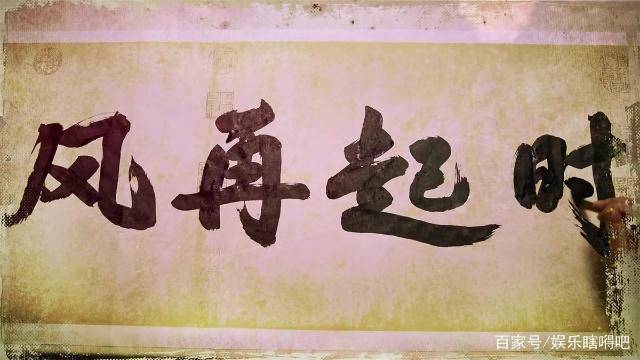 风再起时
百家号/娱乐瞎嘚吧